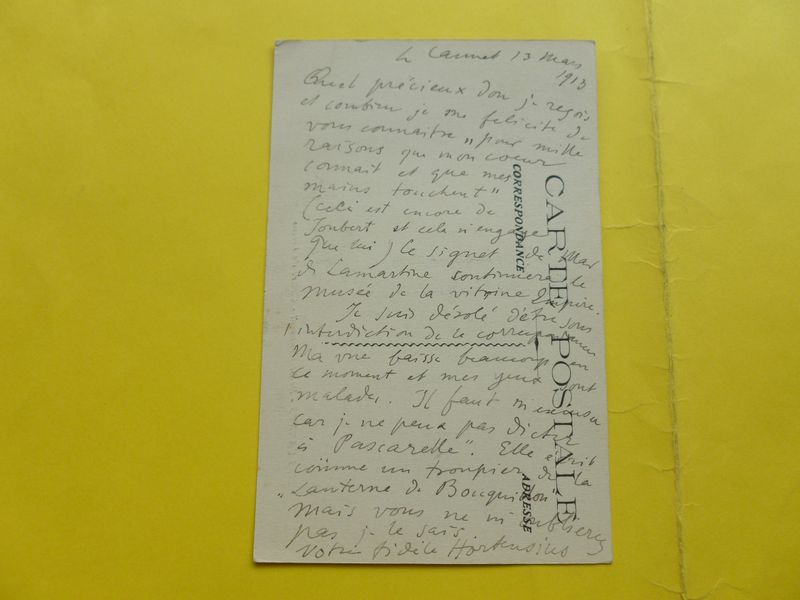 Le Cannet 13 Mars
1913
Quel précieux don je reçois
et combien je me félicite de
vous connaitre "pour mille
raisons que mon coeur
connait et que mes
mains touchent"
(celà est encore de
Joubert et cela n'engage
que lui) le signet de Mad
de Lamartine continuera le
musée de la vitrine Empire.
Je suis désolé d'être sous
interdiction de le correspondance
Ma vue baisse beaucoup en
ce moment et mes yeux sont
malades. Il faut m'excuser
car je ne peux pas dicter
à Pascarelle". Elle écrit
comme un troupier de la
"Lanterne de Bouquillon"
mais vous ne m'oublierez
pas je le sais
Votre fidèle Hortensius
CARTE POSTALE
CORRESPONDANCE
ADRESSE